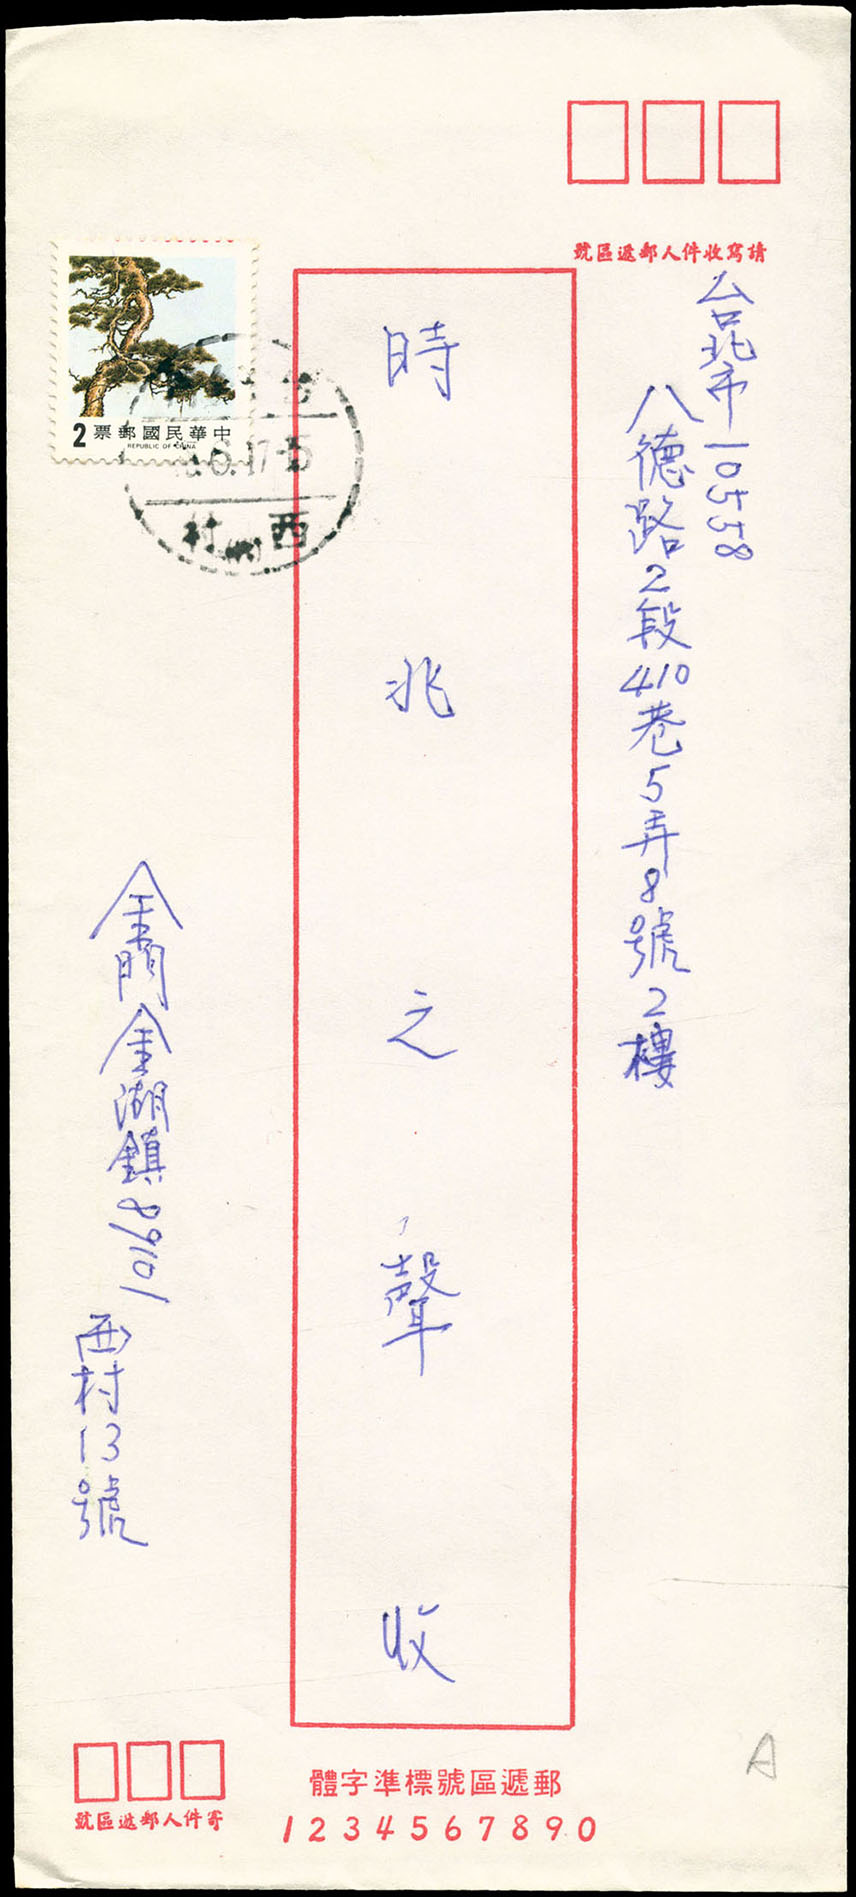 請寫收件人郵遞區號
台北市10558
八德路2段410巷5弄8號2樓
時兆之聲收
2 票郵國民華中
REPUBLIC OF CHINA
.6.17-15
村 西
金門金湖鎮89101
西村13號
寄件人郵遞區號
郵遞區號標準字體
1 2 3 4 5 6 7 8 9 0
A